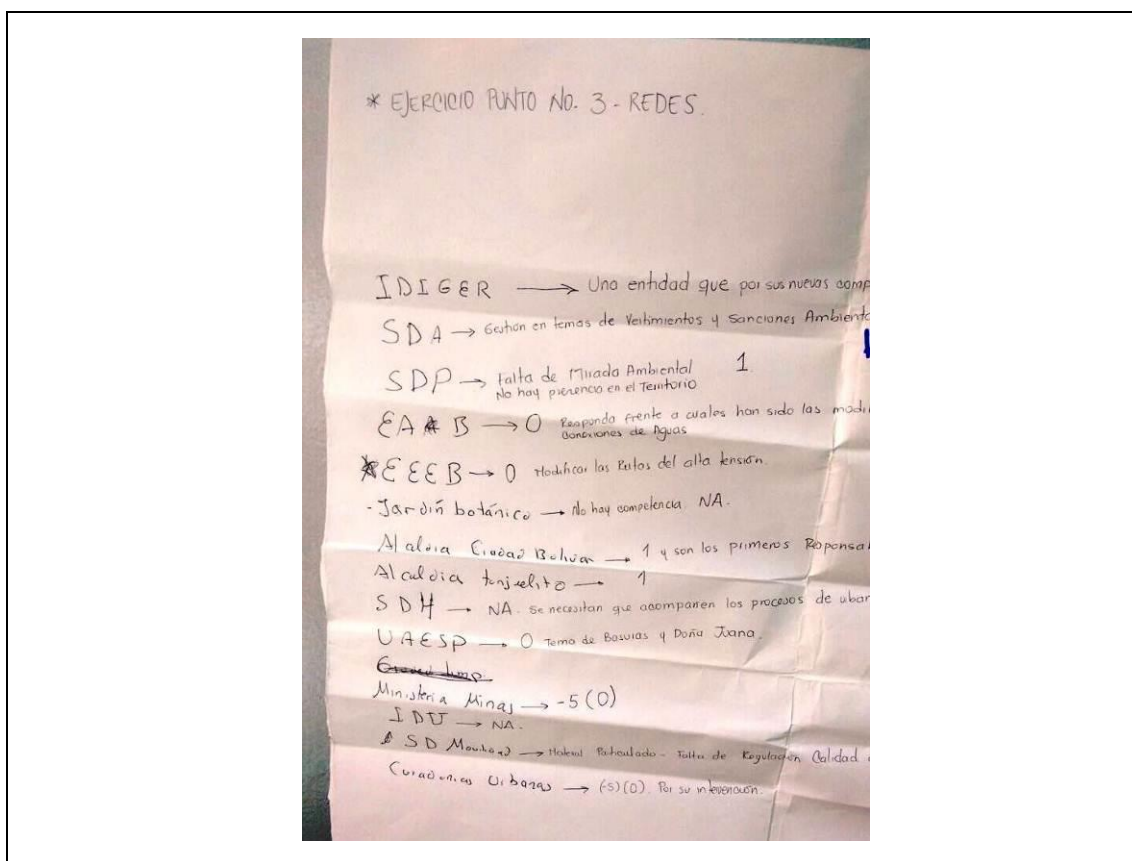 * EJERCICIO PUNTO NO. 3 - REDES.
IDIGER → Una entidad que por sus nuevas comp
SDA → Gestión en temas de Vertimientos y Sanciones Ambienta
SDP → Falta de Mirada Ambiental 1
No hay presencia en el Territorio
EA B → 0 Responda frente a cuales han sido las modi
Condiciones de Aguas
EEEB → 0 Modificar las Rutas del alta tensión.
- Jardín botánico → No hay competencia. NA.
Alcaldia Ciudad Bolivar → 1 y son los primeros Responsa
Alcaldia tunjuelito → 1
SDH → NA. Se necesitan que acompañen los procesos de
UAESP → 0 Tema de Basuras y Doña Juana.
Ministerio Minas → -5 (0)
IDU → NA.
SD → Material Particulado - Falta de Regulación Calidad
Curadurias Urbanas → (-5)(0). Por su intervención.